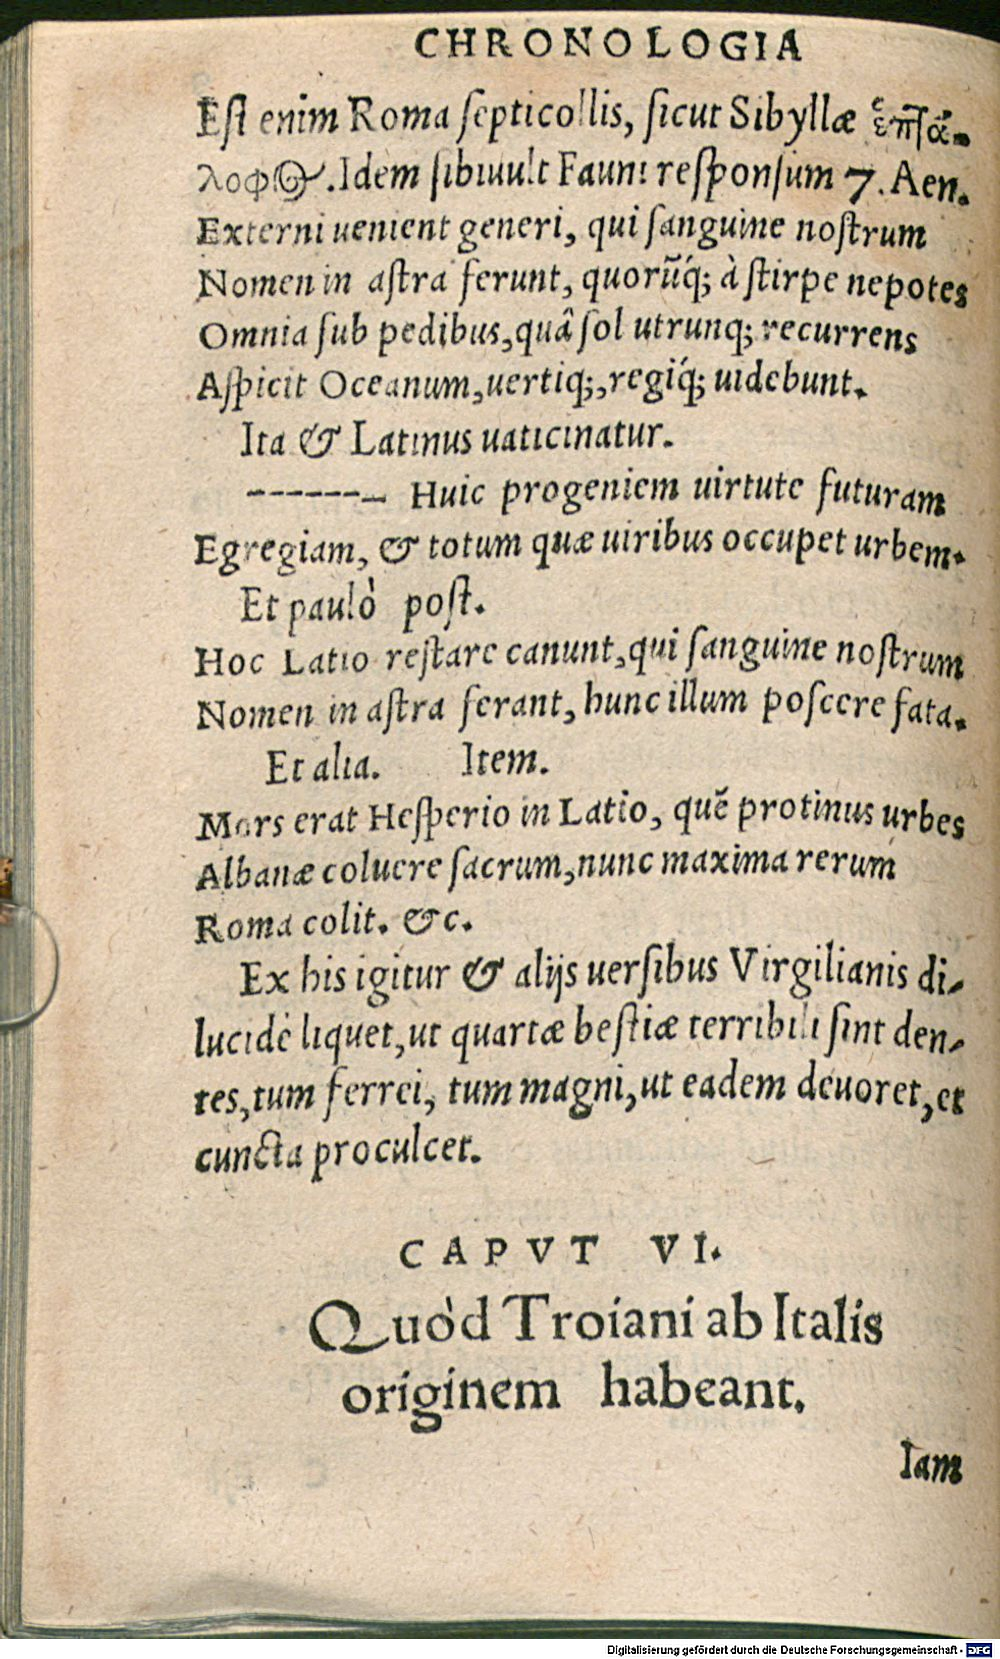 CHRONOLOGIA
Eſt enim Roma ſepticollis, ſicut Sibyllæ ἑπτά-
λοφος. Idem ſibi uult Fauni reſponſum 7. Aen.
Externi uenient generi, qui ſanguine noſtrum
Nomen in aſtra ferunt, quorũq́; à ſtirpe nepotes
Omnia ſub pedibus, quâ ſol utrunq; recurrens
Aſpicit Oceanum, uertiq;, regiq́; uidebunt.
Ita & Latinus uaticinatur.
------- Huic progeniem uirtute futuram
Egregiam, & totum quæ uiribus occupet urbem.
Et paulò post.
Hoc Latio reſtare canunt, qui ſanguine noſtrum
Nomen in aſtra ferant, hunc illum poſcere fata.
Et alia. Item.
Mors erat Heſperio in Latio, quẽ protinus urbes
Albanæ coluere ſacrum, nunc maxima rerum
Roma colit. &c.
Ex his igitur & alijs uerſibus Virgilianis di-
lucidè liquet, ut quartæ beſtiæ terribili ſint den-
tes, tum ferrei, tum magni, ut eadem deuoret, et
cuncta proculcet.
CAPVT VI.
Quòd Troiani ab Italis
originem habeant.
Iam
Digitalisierung gefördert durch die Deutsche Forschungsgemeinschaft - DFG